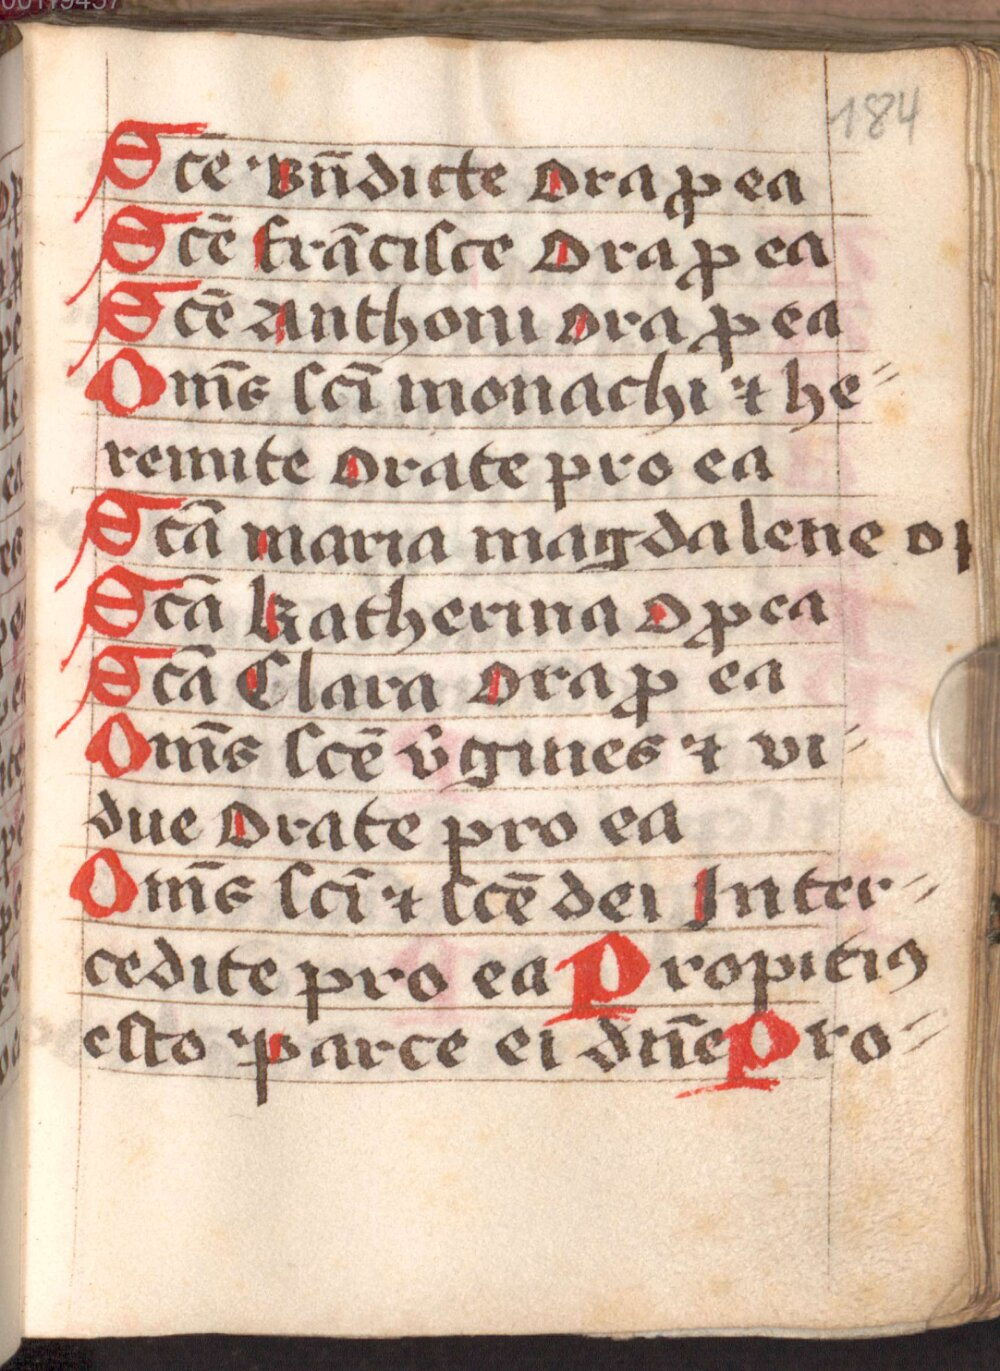 184
Scē Bn̄dicte Ora ꝓ ea
Scē francisce Ora ꝓ ea
Scē Anthoni Ora ꝓ ea
Om̄s sci̅ monachi ⁊ he⸗
remite Orate pro ea
Scā maria magdalene o p
Scā Katherina O ꝓ ea
Scā Clara Ora ꝓ ea
Om̄s scē v̄gines ⁊ vi⸗
due Orate pro ea
Om̄s sci̅ ⁊ scē dei Inter⸗
cedite pro ea Propitiꝰ
esto Parce ei dn̄e Pro⸗